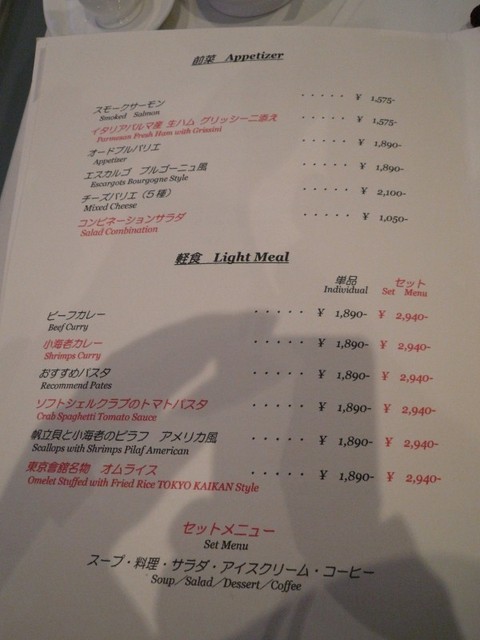 前菜 Appetizer
スモークサーモン ・・・・・ ¥ 1,575-
Smoked Salmon
イタリアパルマ産 生ハム グリッシーニ添え ・・・・・ ¥ 1,575-
Parmesan Fresh Ham with Grissini
オードブルバリエ ・・・・・ ¥ 1,890-
Appetizer
エスカルゴ ブルゴーニュ風 ・・・・・ ¥ 1,890-
Escargots Bourgogne Style
チーズバリエ（５種） ・・・・・ ¥ 2,100-
Mixed Cheese
コンビネーションサラダ ・・・・・ ¥ 1,050-
Salad Combination
軽食 Light Meal
単品 セット
Individual Set Menu
ビーフカレー ・・・・・ ¥ 1,890- ¥ 2,940-
Beef Curry
小海老カレー ・・・・・ ¥ 1,890- ¥ 2,940-
Shrimps Curry
おすすめパスタ ・・・・・ ¥ 1,890- ¥ 2,940-
Recommend Pates
ソフトシェルクラブのトマトパスタ ・・・・・ ¥ 1,890- ¥ 2,940-
Crab Spaghetti Tomato Sauce
帆立貝と小海老のピラフ アメリカ風 ・・・・・ ¥ 1,890- ¥ 2,940-
Scallops with Shrimps Pilaf American
東京會舘名物 オムライス ・・・・・ ¥ 1,890- ¥ 2,940-
Omelet Styffed with Fried Rice TOKYO KAIKAN Style
セットメニュー
Set Menu
スープ・料理・サラダ・アイスクリーム・コーヒー
Soup／Salad／Dessert／Coffee